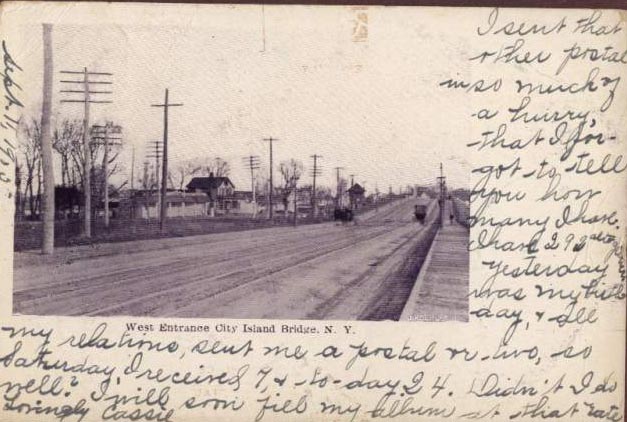 Sept. 11, 190
I sent that
other postal
in so much of
a hurry,
that I for-
got to tell
you how
many I have.
I have 292
Yesterday
was my birth
day, & all
West Entrance City Island Bridge, N. Y.
my relations, sent me a postal or two, so
Saturday, I received 7, & to-day 24. Didn't I do
well? I will soon fill my album at that rate
Lovingly Cassie